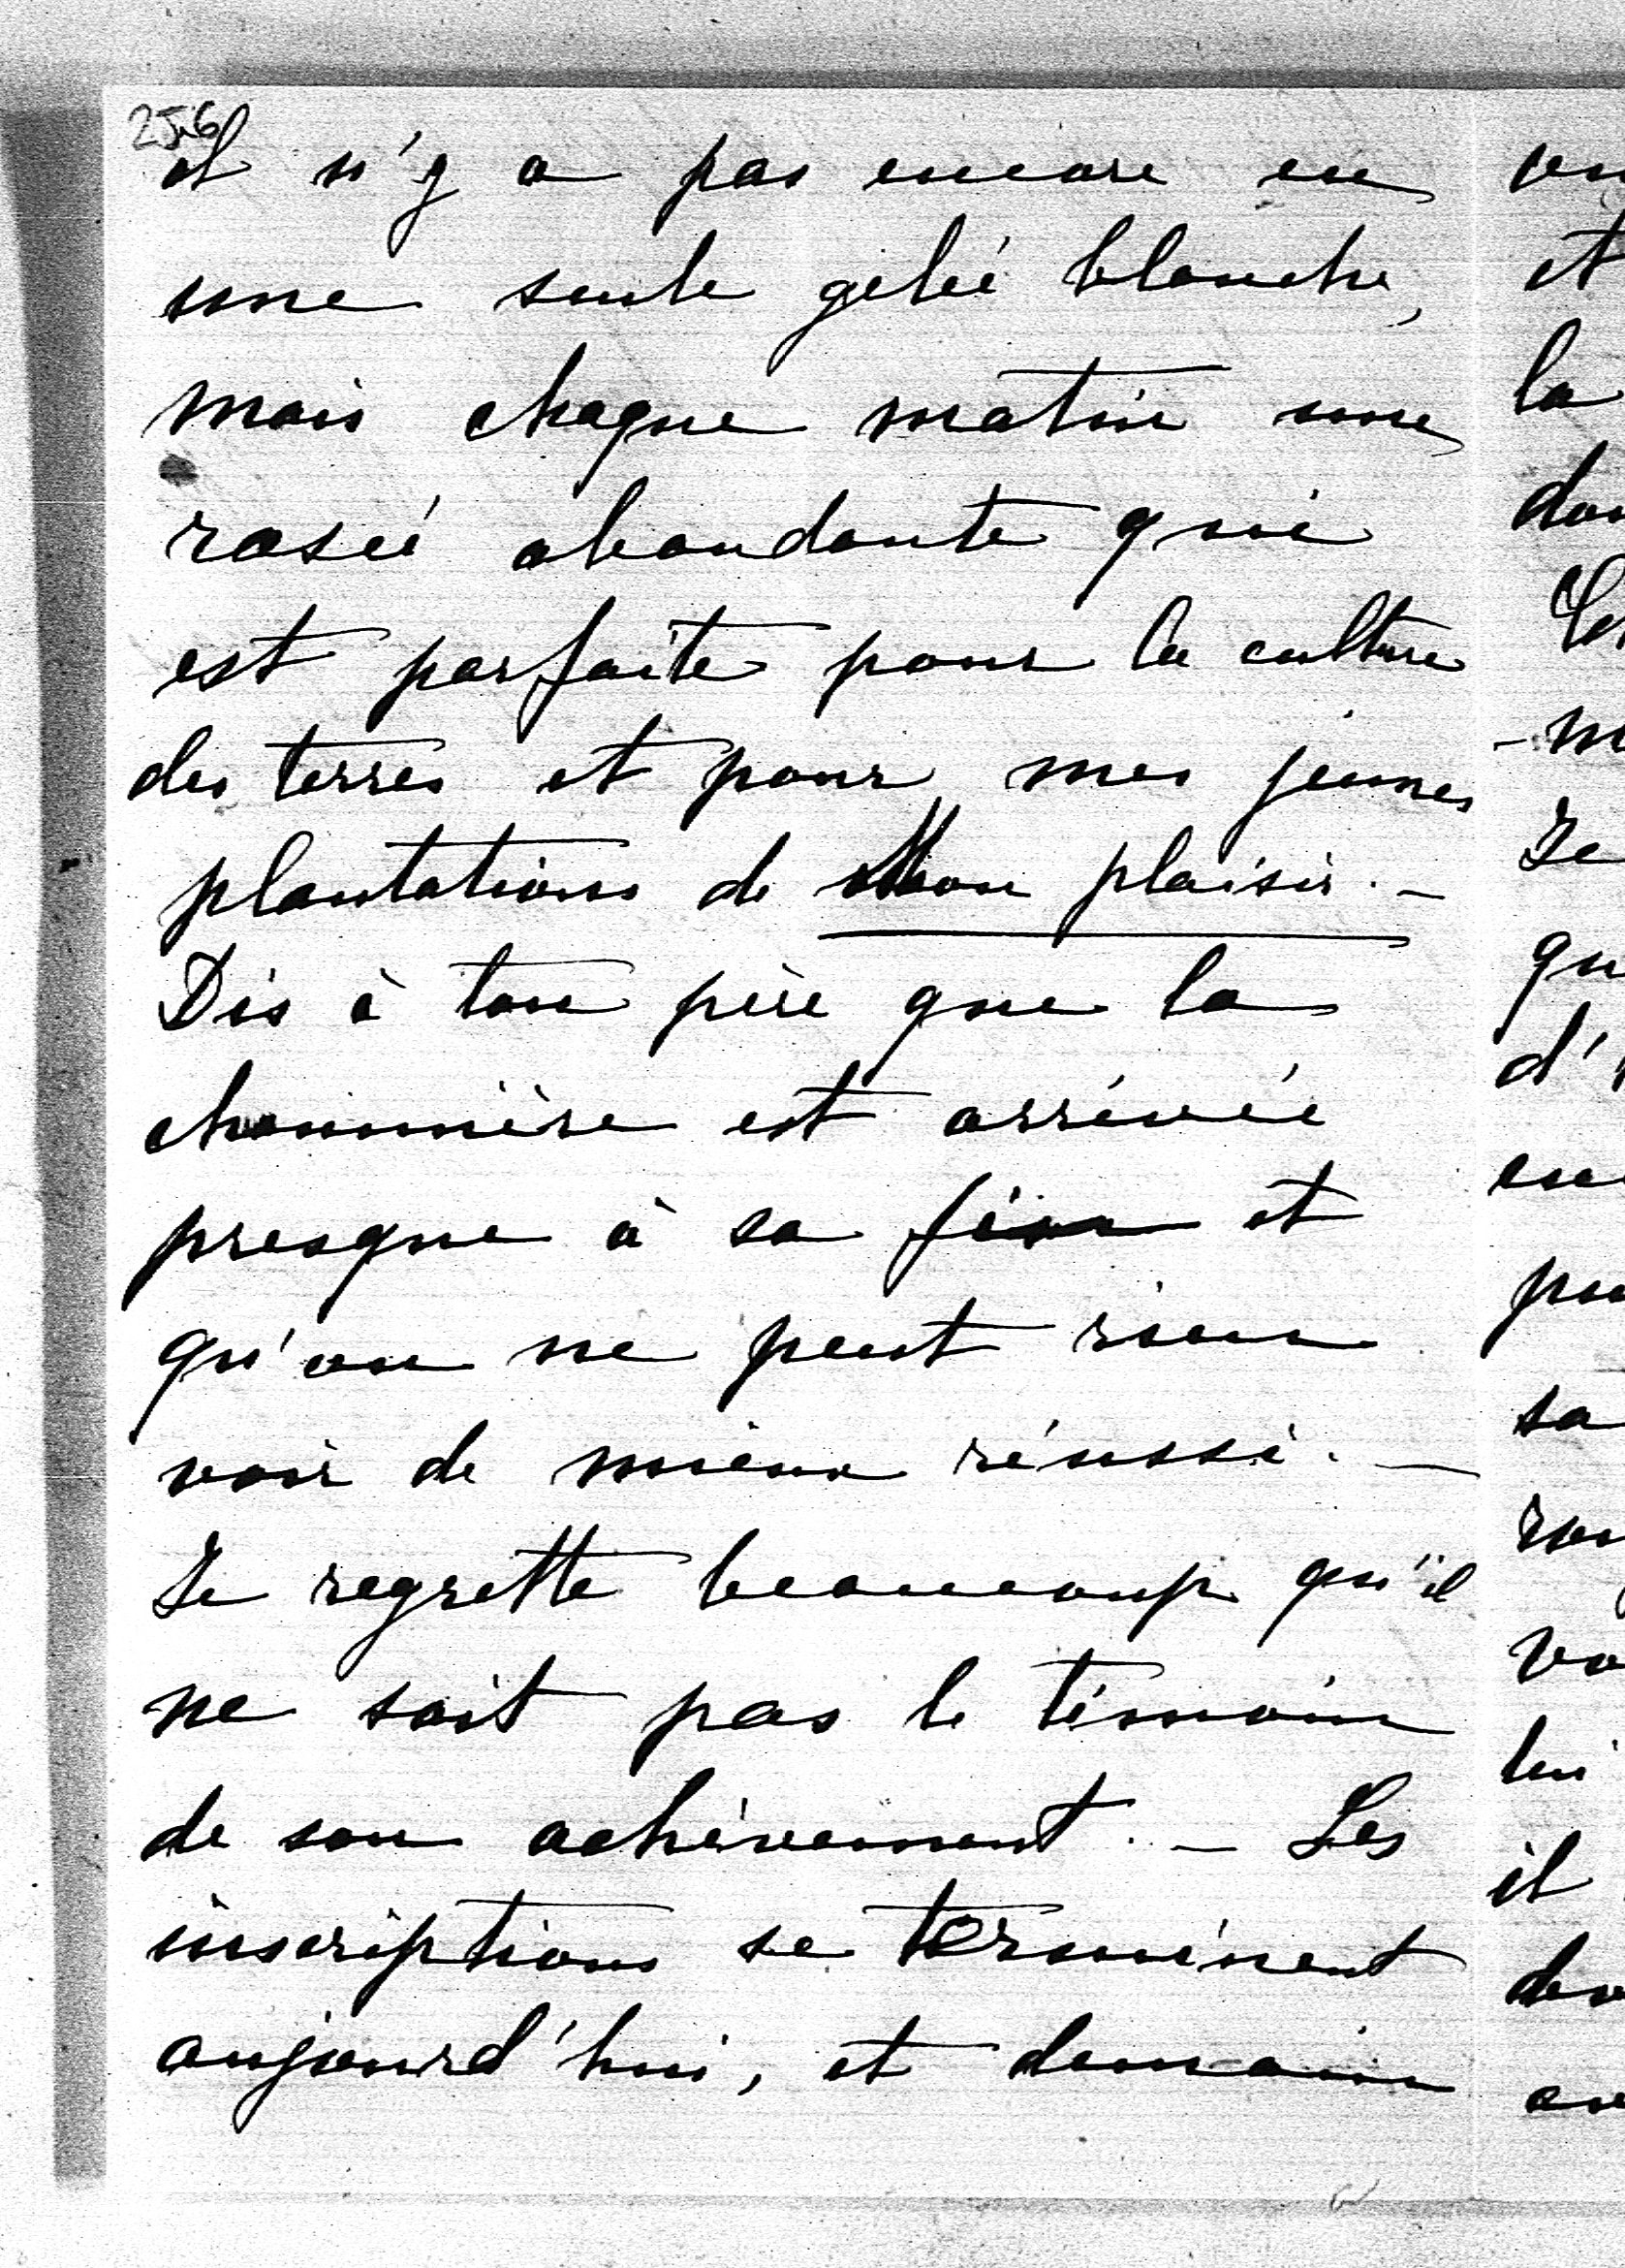 2J6
il n'y a pas encore eu
une seule gelée blanche,
mais chaque matin une
rosée abondante qui
est parfaite pour la culture
des terres et pour mes jeunes
plantations de Mon plaisir. _
Dis à ton père que la
chaumière est arrivée
presque à sa fin et
qu'on ne peut rien
voir de mieux réussi. _
Je regrette beaucoup qu'il
ne soit pas le témoin
de son achèvement. _ Les
inscriptions se terminent
aujourd'hui, et demain
et
la
Je
qu
d'
sa
lui
il